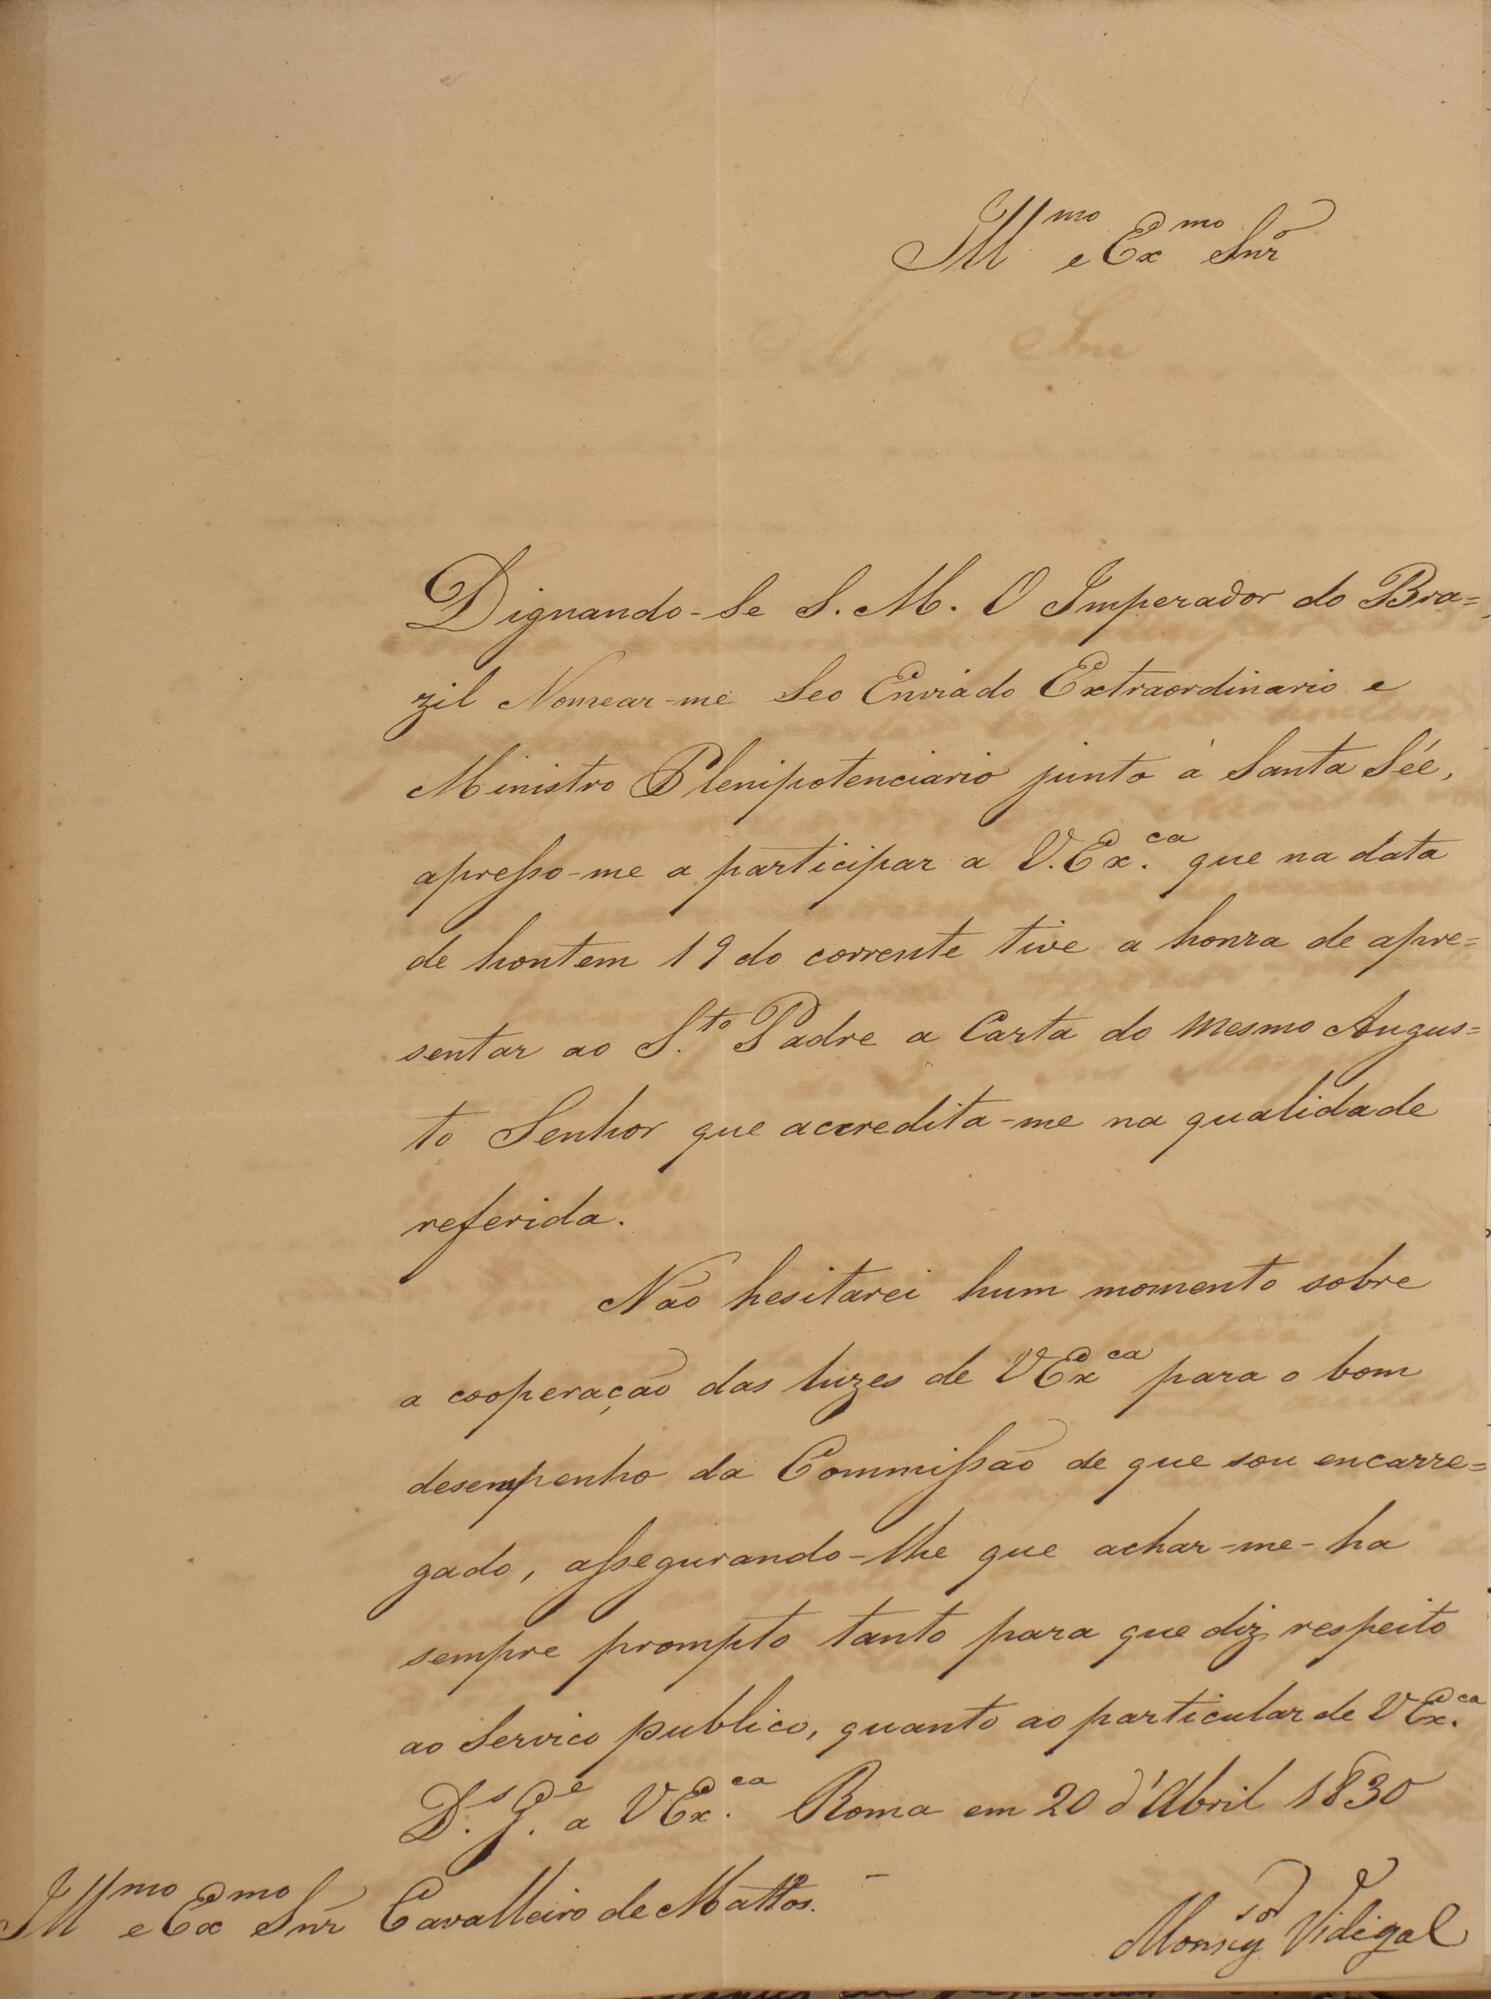 Ill.mo e Ex.mo Snr.
Dignando-Se S. M. O Imperador do Bra=
zil Nomear-me Seo Enviádo Extraordinario e
Ministro Plenipotenciario junto á Santa Sée,
apresso-me a participar a V.Ex.ca que na data
de hontem 19 do corrente tive a honra de apre=
sentar ao S.to Padre a Carta do Mesmo Augus=
to Senhor que accredita-me na qualidade
referida.
Não hesitarei hum momento sobre
a cooperação das luzes de VEx.ca para o bom
desempenho da Commissão de que sou encarre=
gado, assegurando-lhe que achar-me-ha
sempre prompto tanto para que diz respeito
ao Servico publico, quanto ao particular de VEx.ca
D.s G.e a VEx.ca Roma em 20 d'Abril 1830
Ill.mo e Ex.mo Snr. Cavalleiro de Mattos.
Monsg.or Vidigal